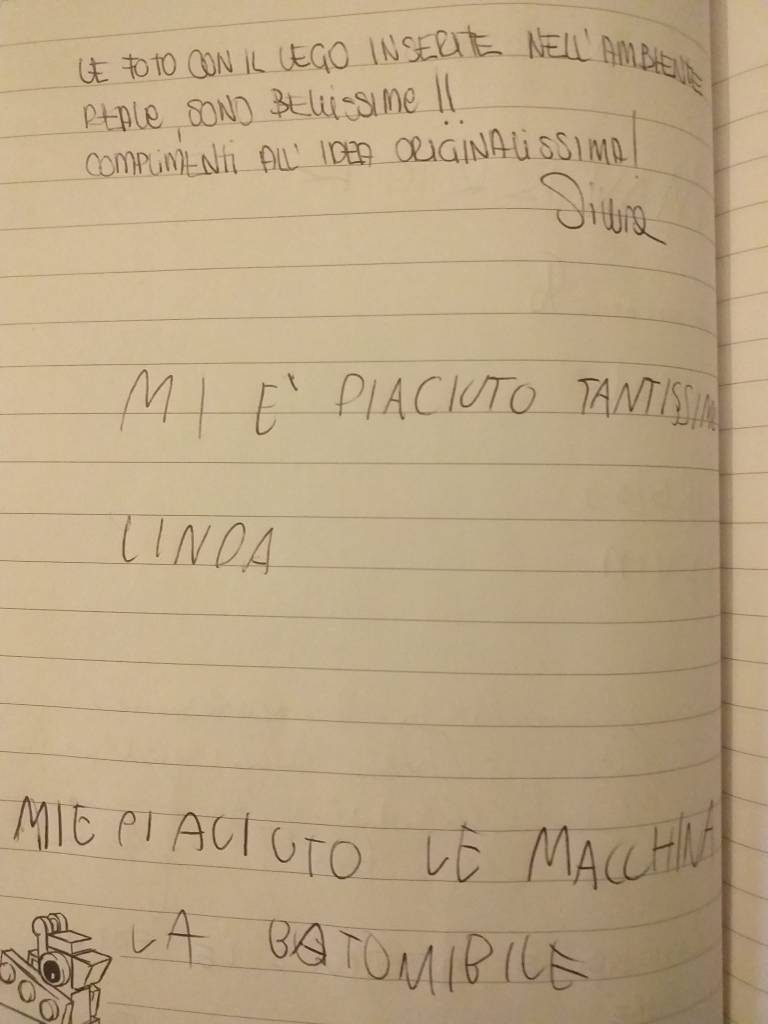 LE FOTO CON IL LEGO INSERITE NELL'AMBIENTE
REALE, SONO BELLISSIME!!
COMPLIMENTI ALL'IDEA ORIGINALISSIMA!
MI E' PIACIUTO TANTISSIMO
LINDA
MIE PIACIUTO LE MACCHINE
LA BATOMIBILE